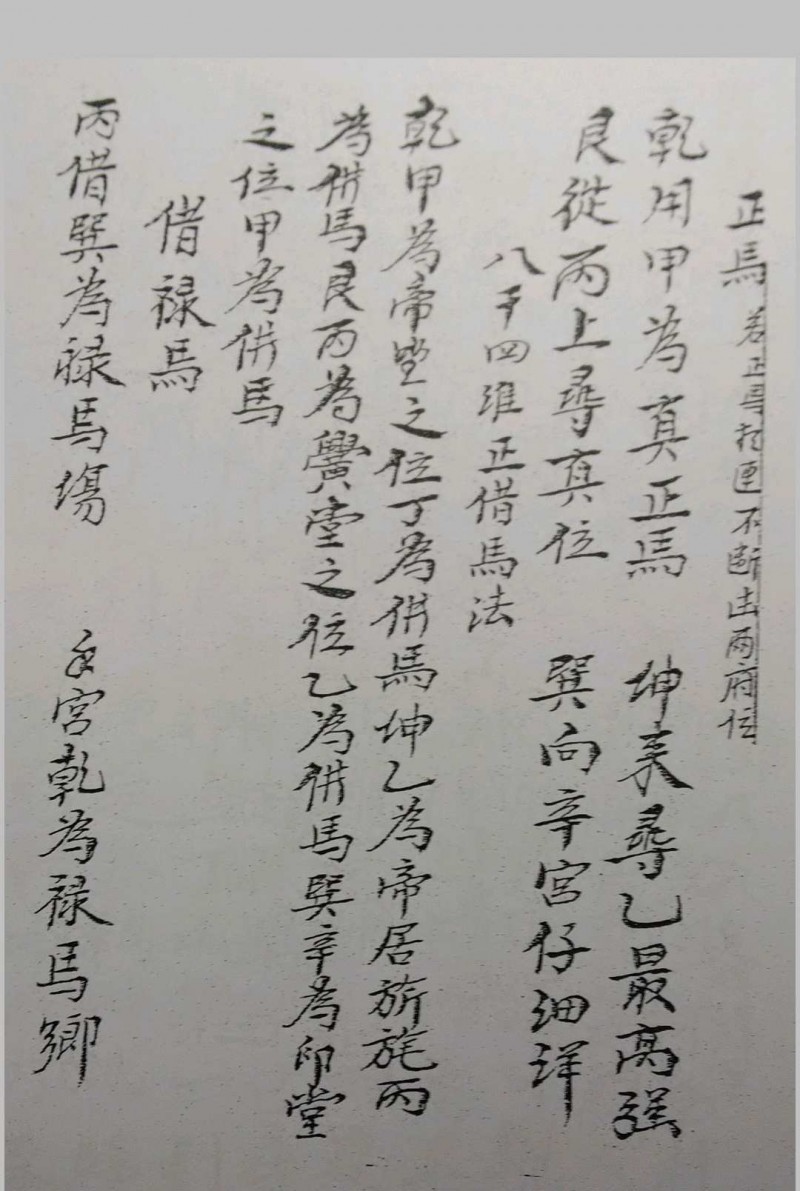 正馬 若正馬拍匣不斷出兩府位
乾用甲為真正馬 坤来尋乙最高强
艮從丙上尋真位 巽向辛宮仔細詳
八干四維正借馬法
乾甲為帝坐之位丁為併馬坤乙為帝居旂旄丙
為併馬艮丙為黌堂之位乙為併馬巽辛為印堂
之位甲為併馬
借祿馬
丙借巽為祿馬場 宮乾為祿馬鄉